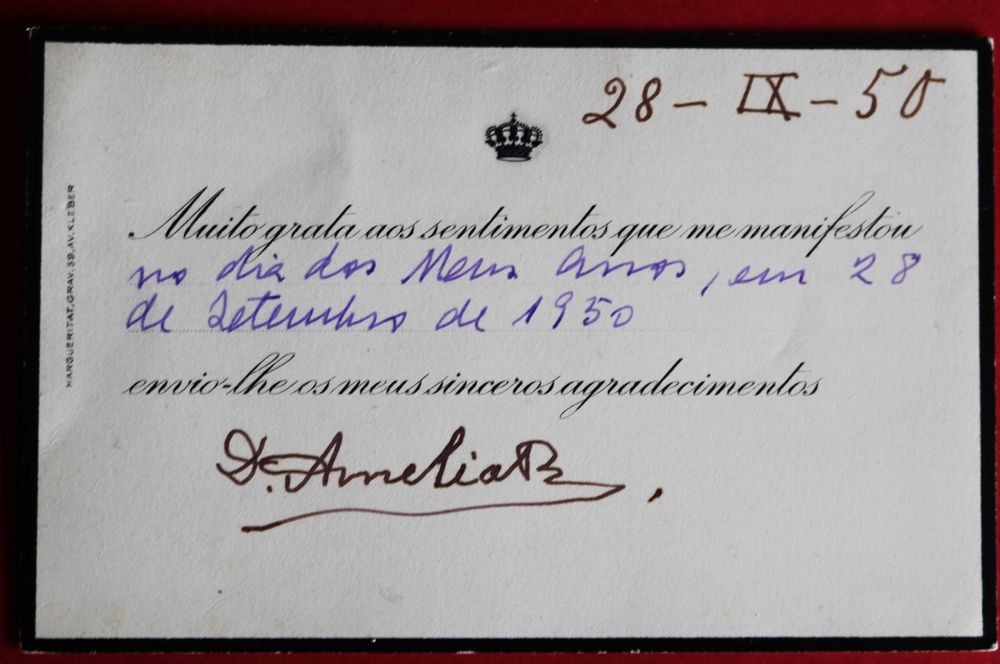 28 - IX - 50
Muito grata aos sentimentos que me manifestou
no dia dos Meus Anos, em 28
de Setembro de 1950
envio-lhe os meus sinceros agradecimentos
D. Amelia R
MARGUERITAT, GRAV. 59, AV. KLEBER